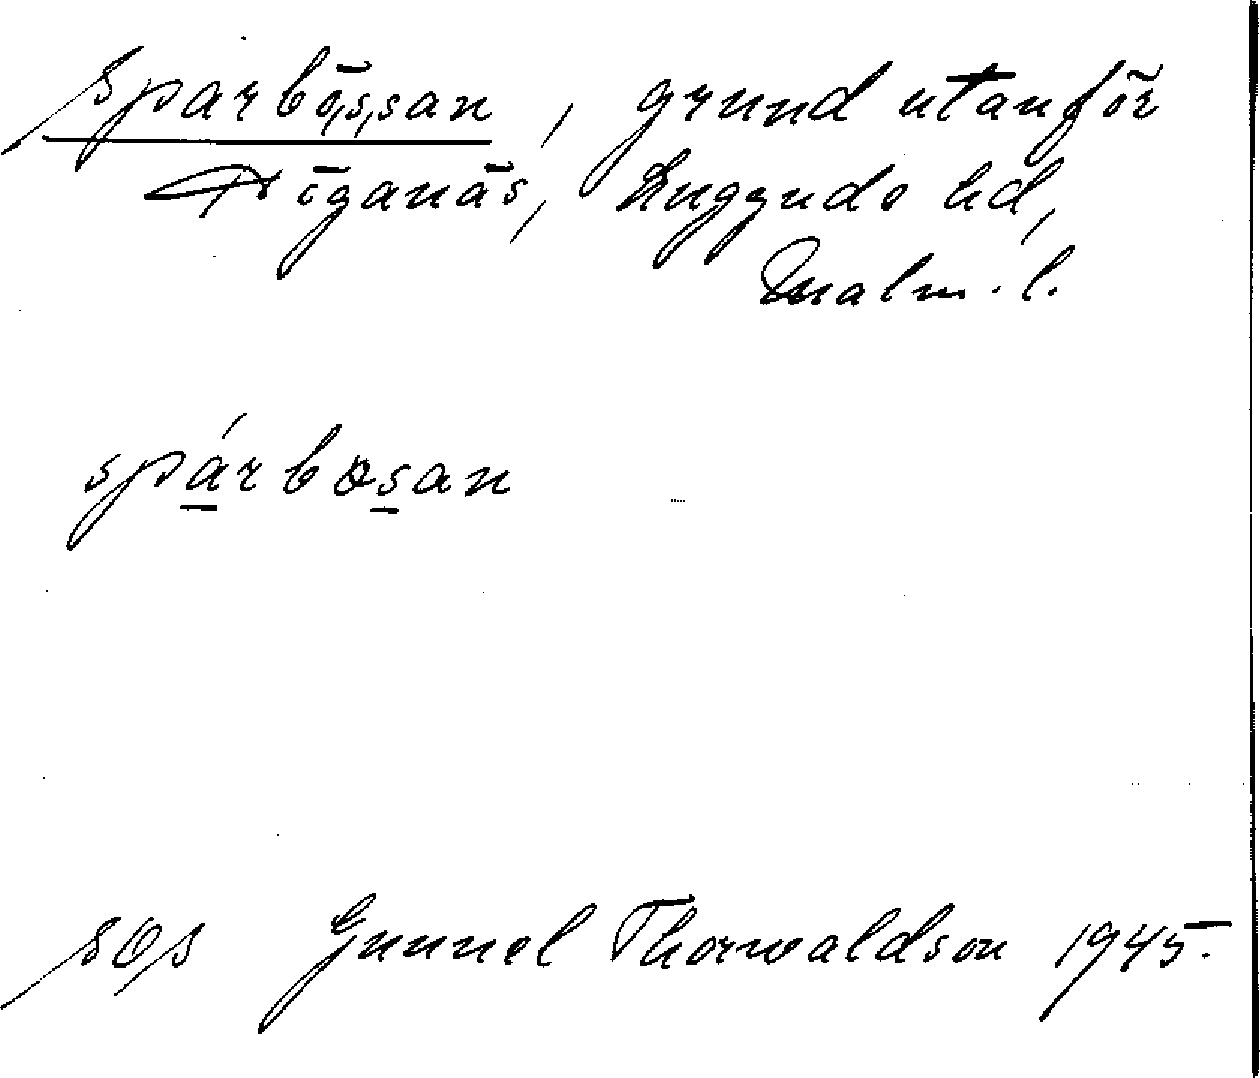 Sparbössan, grund utanför
Höganäs, Luggude hd,
Malm. l.
spárbosan
SOS Gunnel Thorwaldson 1945.